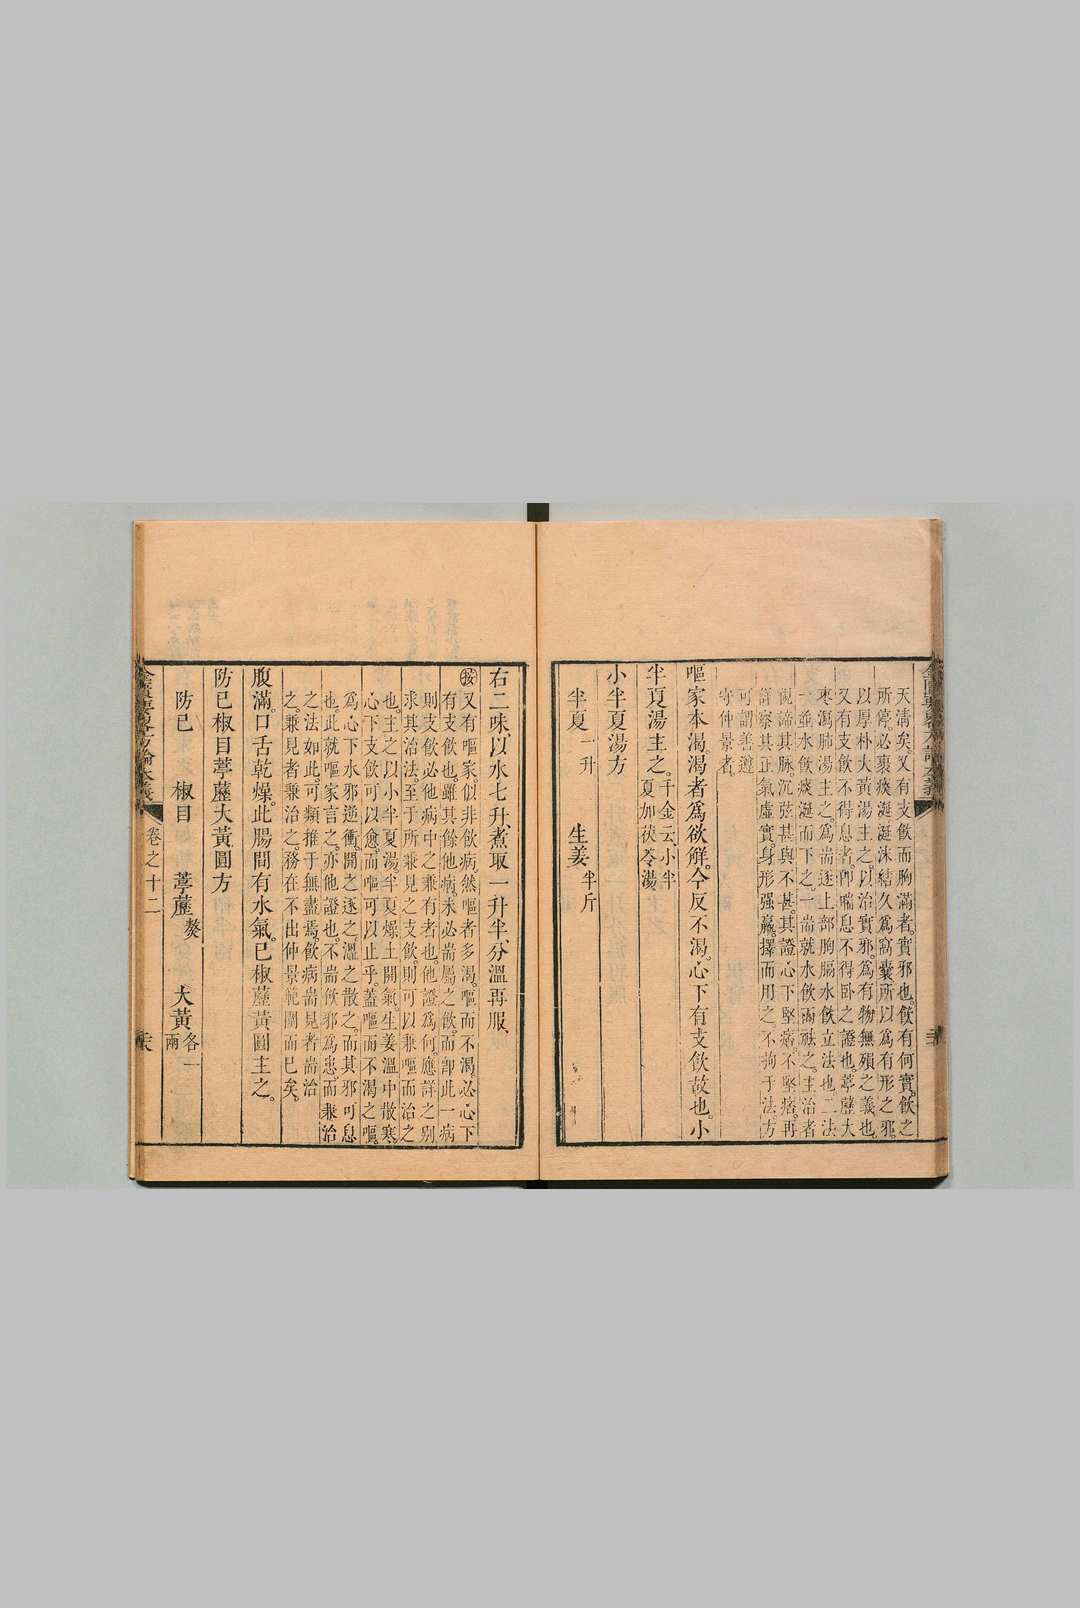 天清矣。又有支飲而胸滿者。實邪也。飲有何實。飲之
所停。必裹痰涎涎沫結久爲窩囊所以爲有形之邪。
以厚朴大黃湯主之。以治實邪。爲有物無殞之義也。
又有支飲不得息者。卽喘息不得臥之證也。葶藶大
棗瀉肺湯主之。爲耑逐上部胸膈水飲立法也。二法
一並水飲痰涎而下之。一耑就水飲而祛之。主治者
覘諦其脉。沉弦甚與不甚。其證心下堅痞。不堅痞。再
詳察其正氣虛實。身形强羸。擇而用之。不拘于法。方
可謂善遵
守仲景者
嘔家本渴。渴者爲欲觧。今反不渴。心下有支飲故也。小
半夏湯主之。千金云、小半
夏加茯苓湯
小半夏湯方
半夏一升 生姜半斤
右二味、以水七升、煮取一升半、分溫再服、
按又有嘔家。似非飲病。然嘔者多渴。嘔而不渴。必心下
有支飲也。雖其餘他病。未必耑屬之飲。而卽此一病
則支飲必他病中之兼有者也。他證爲何。應詳之別
求其治法。至于所兼見之支飲。則可以兼嘔而治之
也。主之以小半夏湯。半夏燥土開氣。生姜溫中散寒。
心下支飲可以愈。而嘔可以止乎。蓋嘔而不渴之嘔。
爲心下水邪逆衝。開之逐之溫之散之。而其邪可息
也。此就嘔家言之。亦他證也。不耑飲邪爲患。而兼治
之法如此。可類推于無盡焉。飲病耑見者耑治
之。兼見者兼治之。務在不出仲景範圍而已矣。
腹滿。口舌乾燥。此腸間有水氣。已椒藶黃圓主之。
防已椒目葶藶大黃圓方
防已 椒目 葶藶熬 大黃各一
兩
金匱要畧方論本義
卷之十二